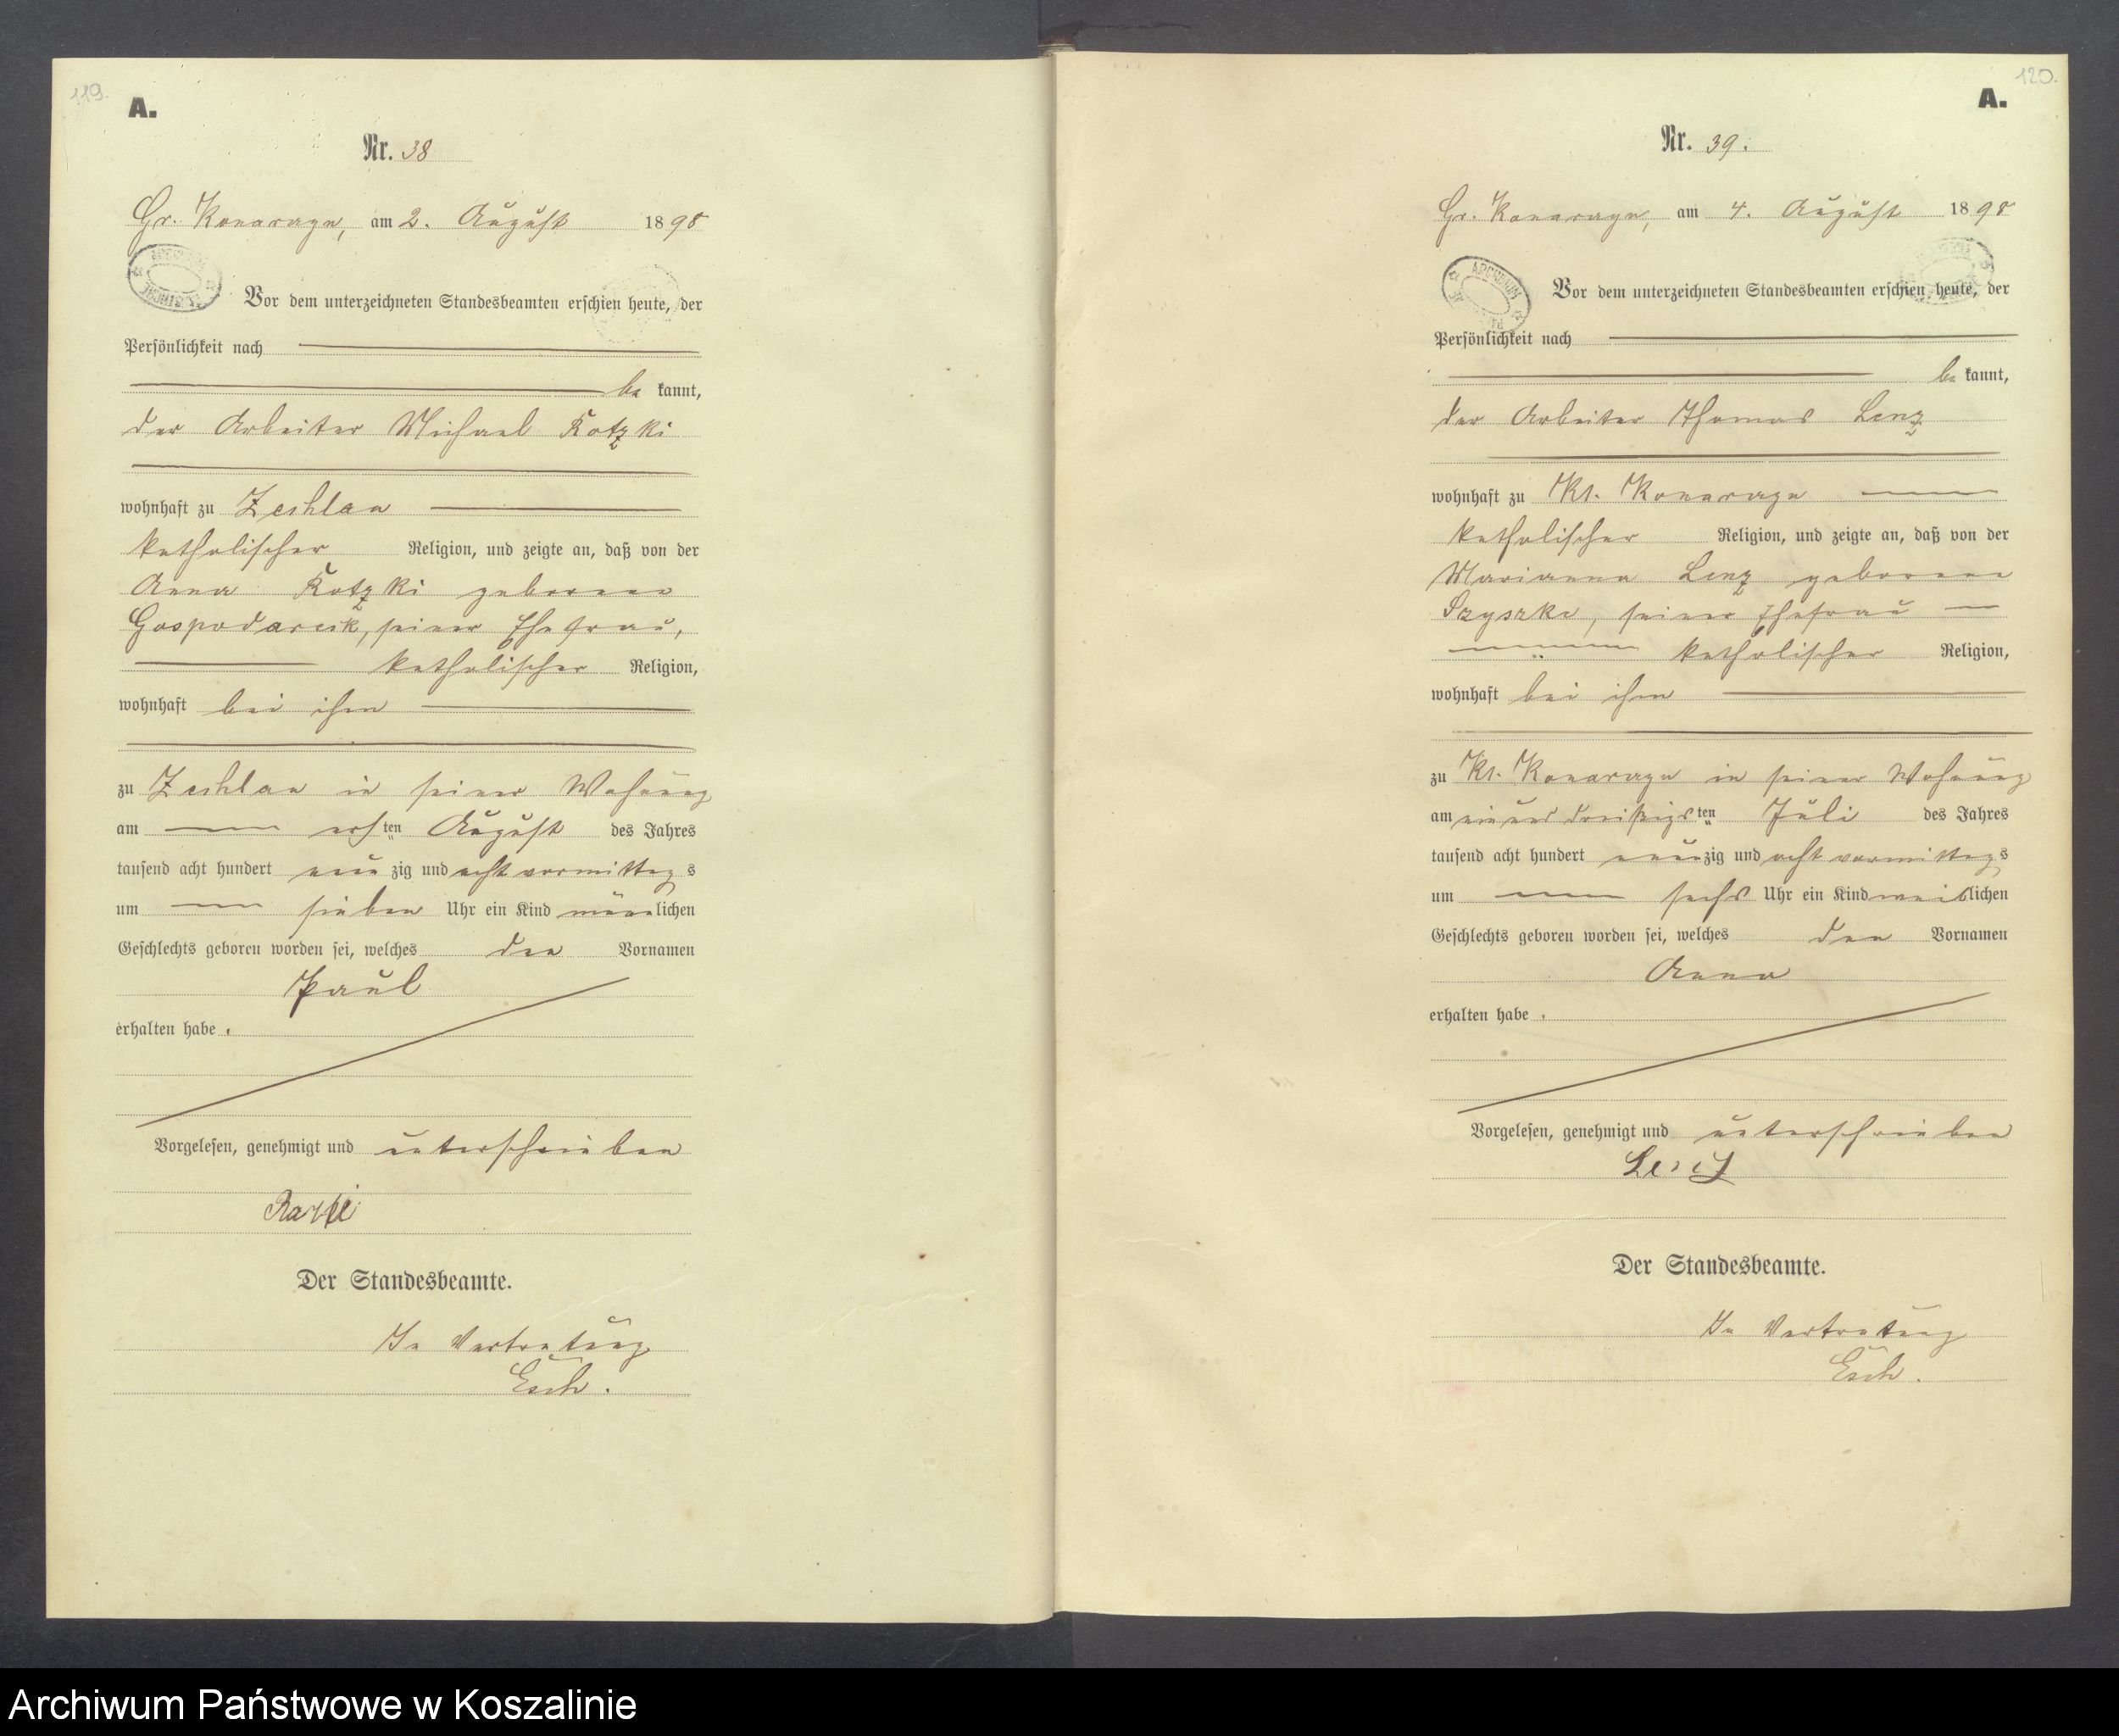 119.
A.
Nr. 38
Gr. Konarzyn, am 2. August 1898
Vor dem unterzeichneten Standesbeamten erschien heute, der
Persönlichkeit nach
be kannt,
der Arbeiter Michael Kotzki
wohnhaft zu Zechlau
katholischer Religion, und zeigte an, daß von der
Anna Kotzki geborene
seiner Ehefrau,
katholischer Religion,
wohnhaft bei ihm
zu Zechlau in seiner Wohnung
am ersten August des Jahres
tausend acht hundert neunzig und acht vormittags
um sieben Uhr ein Kind männlichen
Geschlechts geboren worden sei, welches den Vornamen
Paul
erhalten habe.
Vorgelesen, genehmigt und unterschrieben
Der Standesbeamte.
In Vertretung
Esch.
120.
A.
Nr. 39.
Gr. Konarzyn, am 4. August 1898
ARCHIWUM
Vor dem unterzeichneten Standesbeamten erschien heute, der
Persönlichkeit nach
be kannt,
der Arbeiter Thomas Lenz
wohnhaft zu Kl. Konarzyn
katholischer Religion, und zeigte an, daß von der
Marianna Lenz geborene
Szyszka, seiner Ehefrau
katholischer Religion,
wohnhaft bei ihm
zu Kl. Konarzyn in seiner Wohnung
am einunddreißigsten Juli des Jahres
tausend acht hundert neunzig und acht vormittags
um sechs Uhr ein Kind weiblichen
Geschlechts geboren worden sei, welches den Vornamen
Anna
erhalten habe.
Vorgelesen, genehmigt und unterschrieben
Der Standesbeamte.
In Vertretung
Esch.
Archiwum Państwowe w Koszalinie